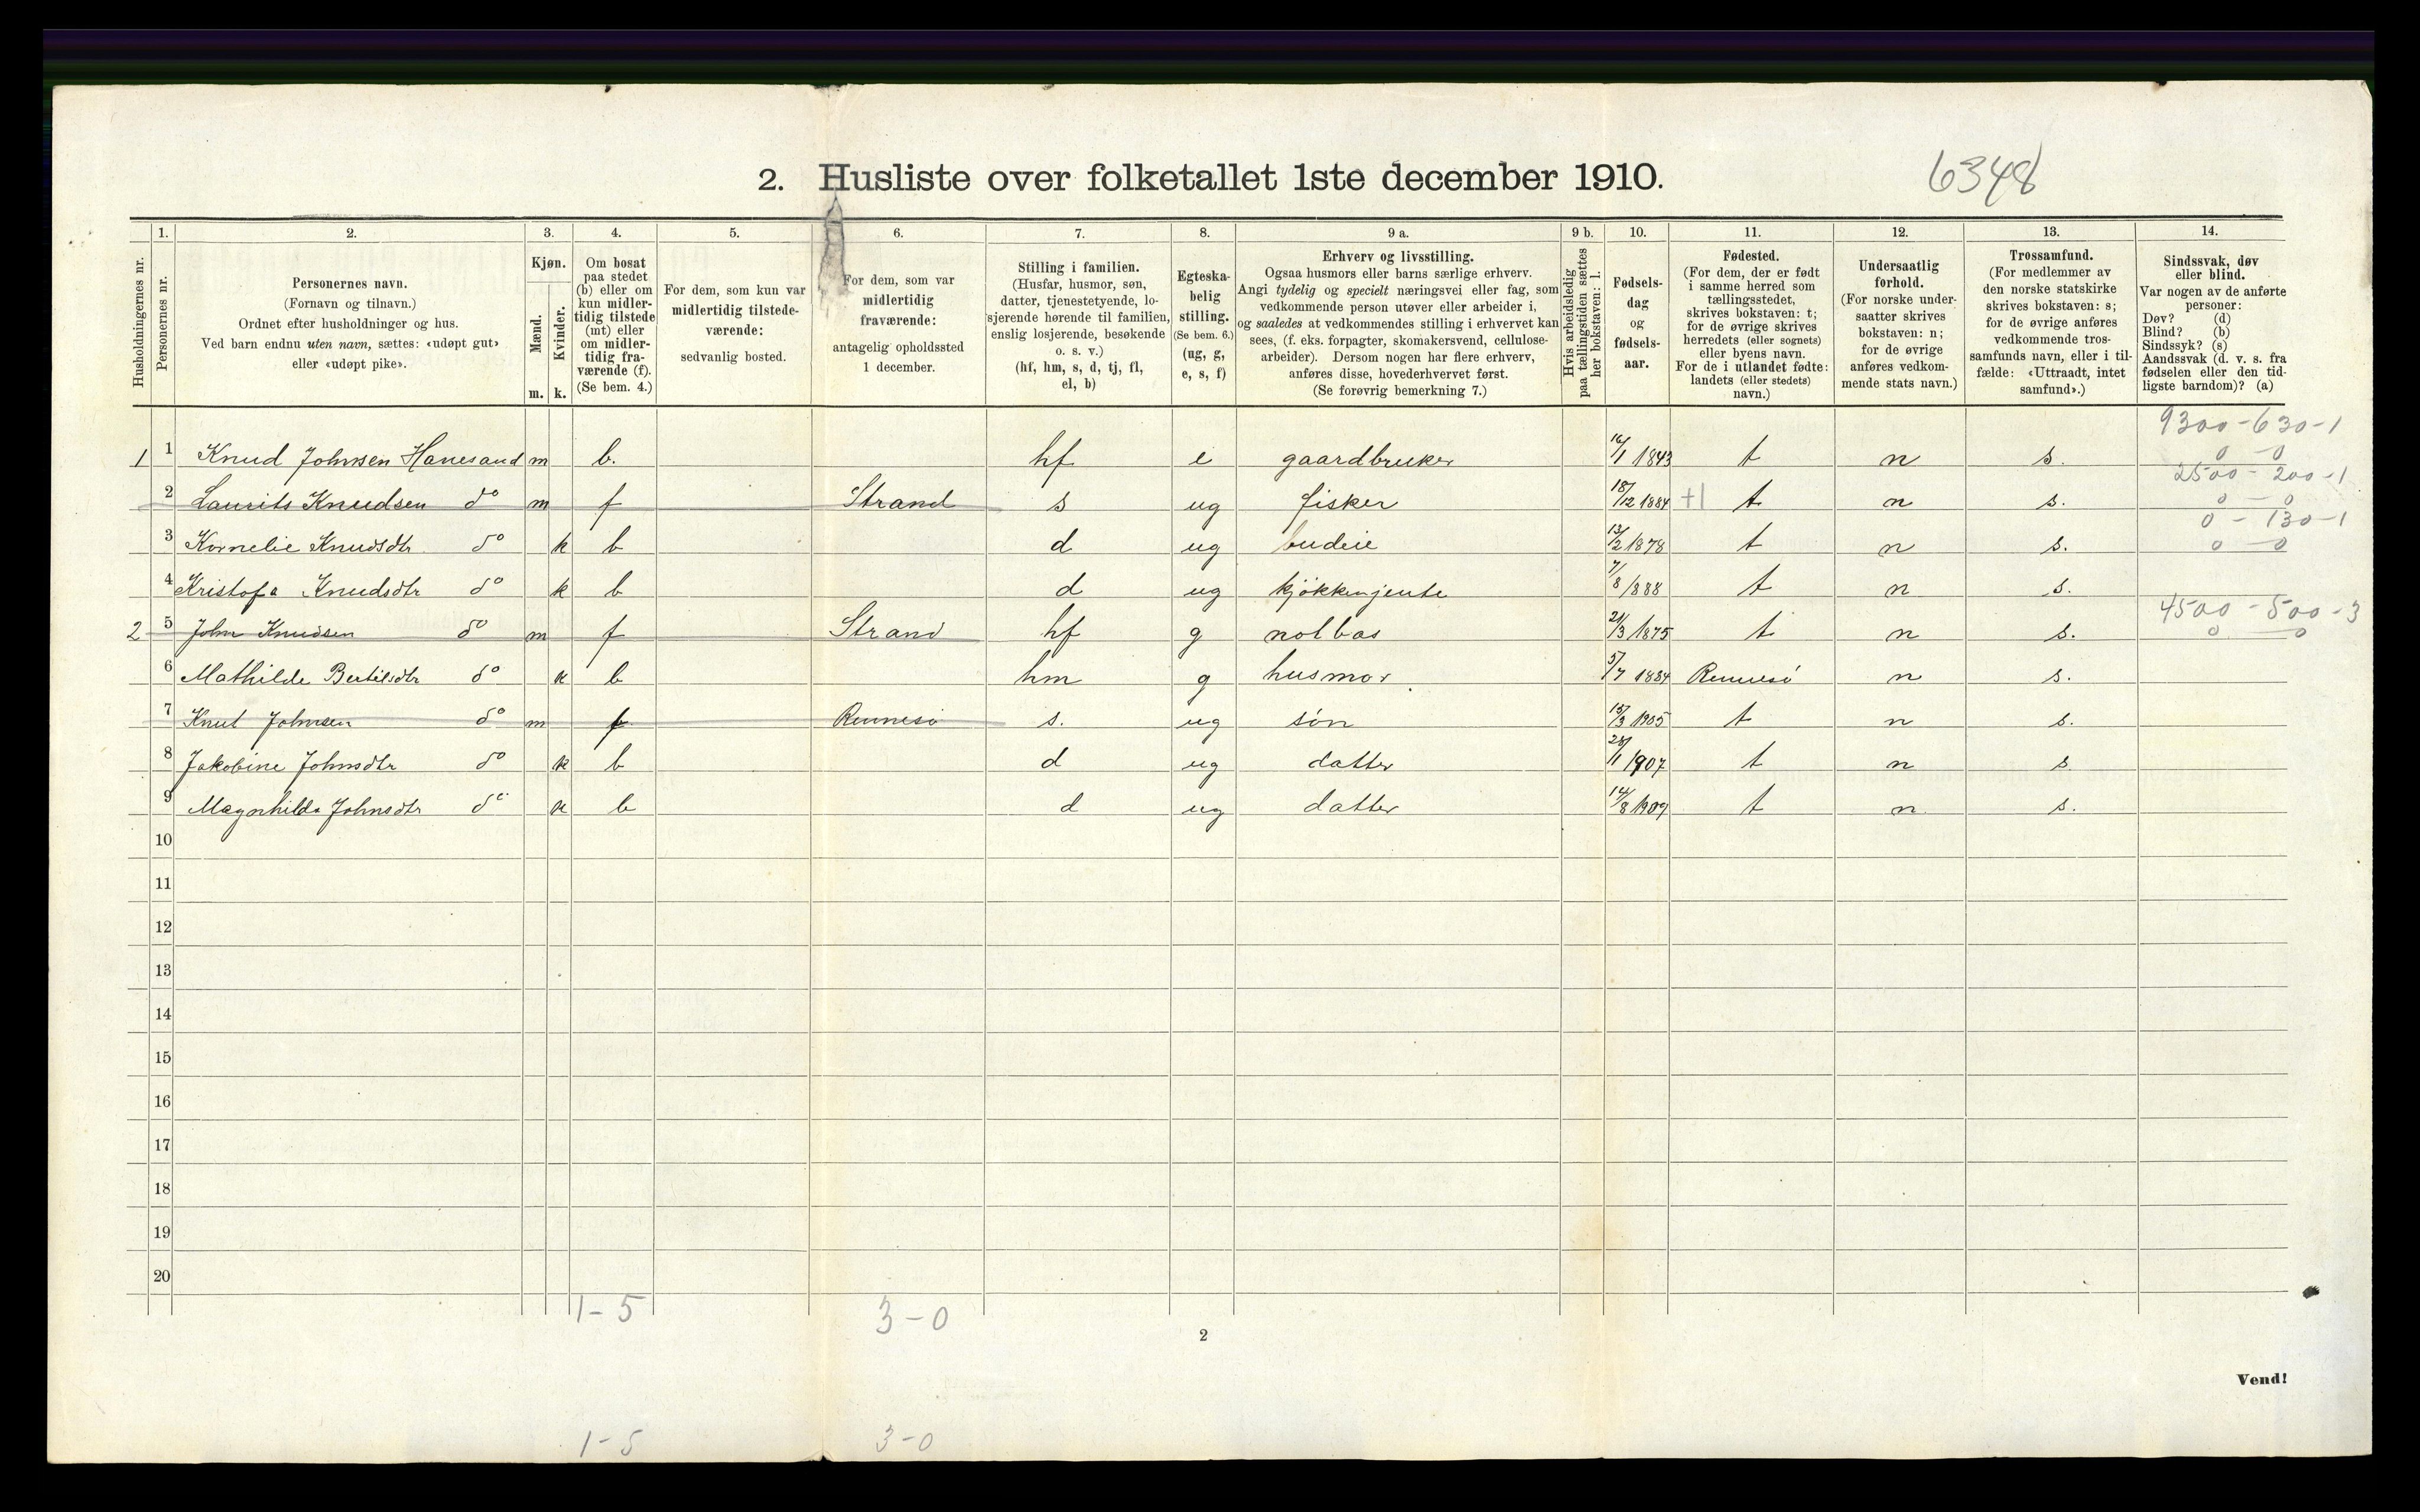 6348
2. Husliste over folketallet 1ste december 1910.
Husholdningernes nr.
1. Personernes nr.
2. Personernes navn.
(Fornavn og tilnavn.)
Ordnet efter husholdninger og hus.
Ved barn endnu uten navn, sættes: «udøpt gut»
eller «udøpt pike».
3. Kjøn.
Mænd. m.
Kvinder. k.
4. Om bosat
paa stedet
(b) eller om
kun midler-
tidig tilstede
(mt) eller
om midler-
tidig fra-
værende (f).
(Se bem. 4.)
5. For dem, som kun var
midlertidig tilstede-
værende:
sedvanlig bosted.
6. For dem, som var
midlertidig
fraværende:
antagelig opholdssted
1 december.
7. Stilling i familien.
(Husfar, husmor, søn,
datter, tjenestetyende, lo-
sjerende hørende til familien,
enslig losjerende, besøkende
o. s. v.)
(hf, hm, s, d, tj, fl,
el, b)
8. Egteska-
belig
stilling.
(Se bem. 6.)
(ug, g,
e, s, f)
9 a. Erhverv og livsstilling.
Ogsaa husmors eller barns særlige erhverv.
Angi tydelig og specielt næringsvei eller fag, som
vedkommende person utøver eller arbeider i,
og saaledes at vedkommendes stilling i erhvervet kan
sees, (f. eks. forpagter, skomakersvend, cellulose-
arbeider). Dersom nogen har flere erhverv,
anføres disse, hovederhvervet først.
(Se forøvrig bemerkning 7.)
9 b. Hvis arbeidsledig
paa tællingstiden sættes
her bokstaven: l.
10. Fødsels-
dag
og
fødsels-
aar.
11. Fødested.
(For dem, der er født
i samme herred som
tællingsstedet,
skrives bokstaven: t;
for de øvrige skrives
herredets (eller sognets)
eller byens navn.
For de i utlandet fødte:
landets (eller stedets)
navn.)
12. Undersaatlig
forhold.
(For norske under-
saatter skrives
bokstaven: n;
for de øvrige
anføres vedkom-
mende stats navn.)
13. Trossamfund.
(For medlemmer av
den norske statskirke
skrives bokstaven: s;
for de øvrige anføres
vedkommende tros-
samfunds navn, eller i til-
fælde: «Uttraadt, intet
samfund».)
14. Sindssvak, døv
eller blind.
Var nogen av de anførte
personer:
Døv? (d)
Blind? (b)
Sindssyk? (s)
Aandssvak (d. v. s. fra
fødselen eller den tid-
ligste barndom)? (a)
9300-630-1
1 1 Knud Johnsen Hanesand m b. hf e gaardbruker 16/1 1843 t n s. 0 - 0
2500 - 200-1
2 Laurits Knudsen do m f Strand s ug fisker 18/12 1884 +1 t n s. 0 - 0
0 - 130-1
3 Kornelie Knudsdtr do k b d ug budeie 13/2 1878 t n s. 0 - 0
4 Kristofa Knudsdtr do k b d ug kjøkkenjente 7/8 1888 t n s.
4500 - 500-3
2 5 John Knudsen do m f Strand hf g notbas 21/3 1875 t n s. 0 - 0
6 Mathilde Bertilsdtr do k b hm g husmor 5/7 1884 Rennesö n s.
7 Knut Johnsen do m f Rennesö s. ug sön 15/3 1905 t n s.
8 Jakobine Johnsdtr do k b d ug datter 28/1 1907 t n s
9 Magnhilda Johnsdtr do k b d ug datter 14/8 1909 t n s.
10
11
12
13
14
15
16
17
18
19
20
1-5 3-0
2
Vend!
1-5 3-0